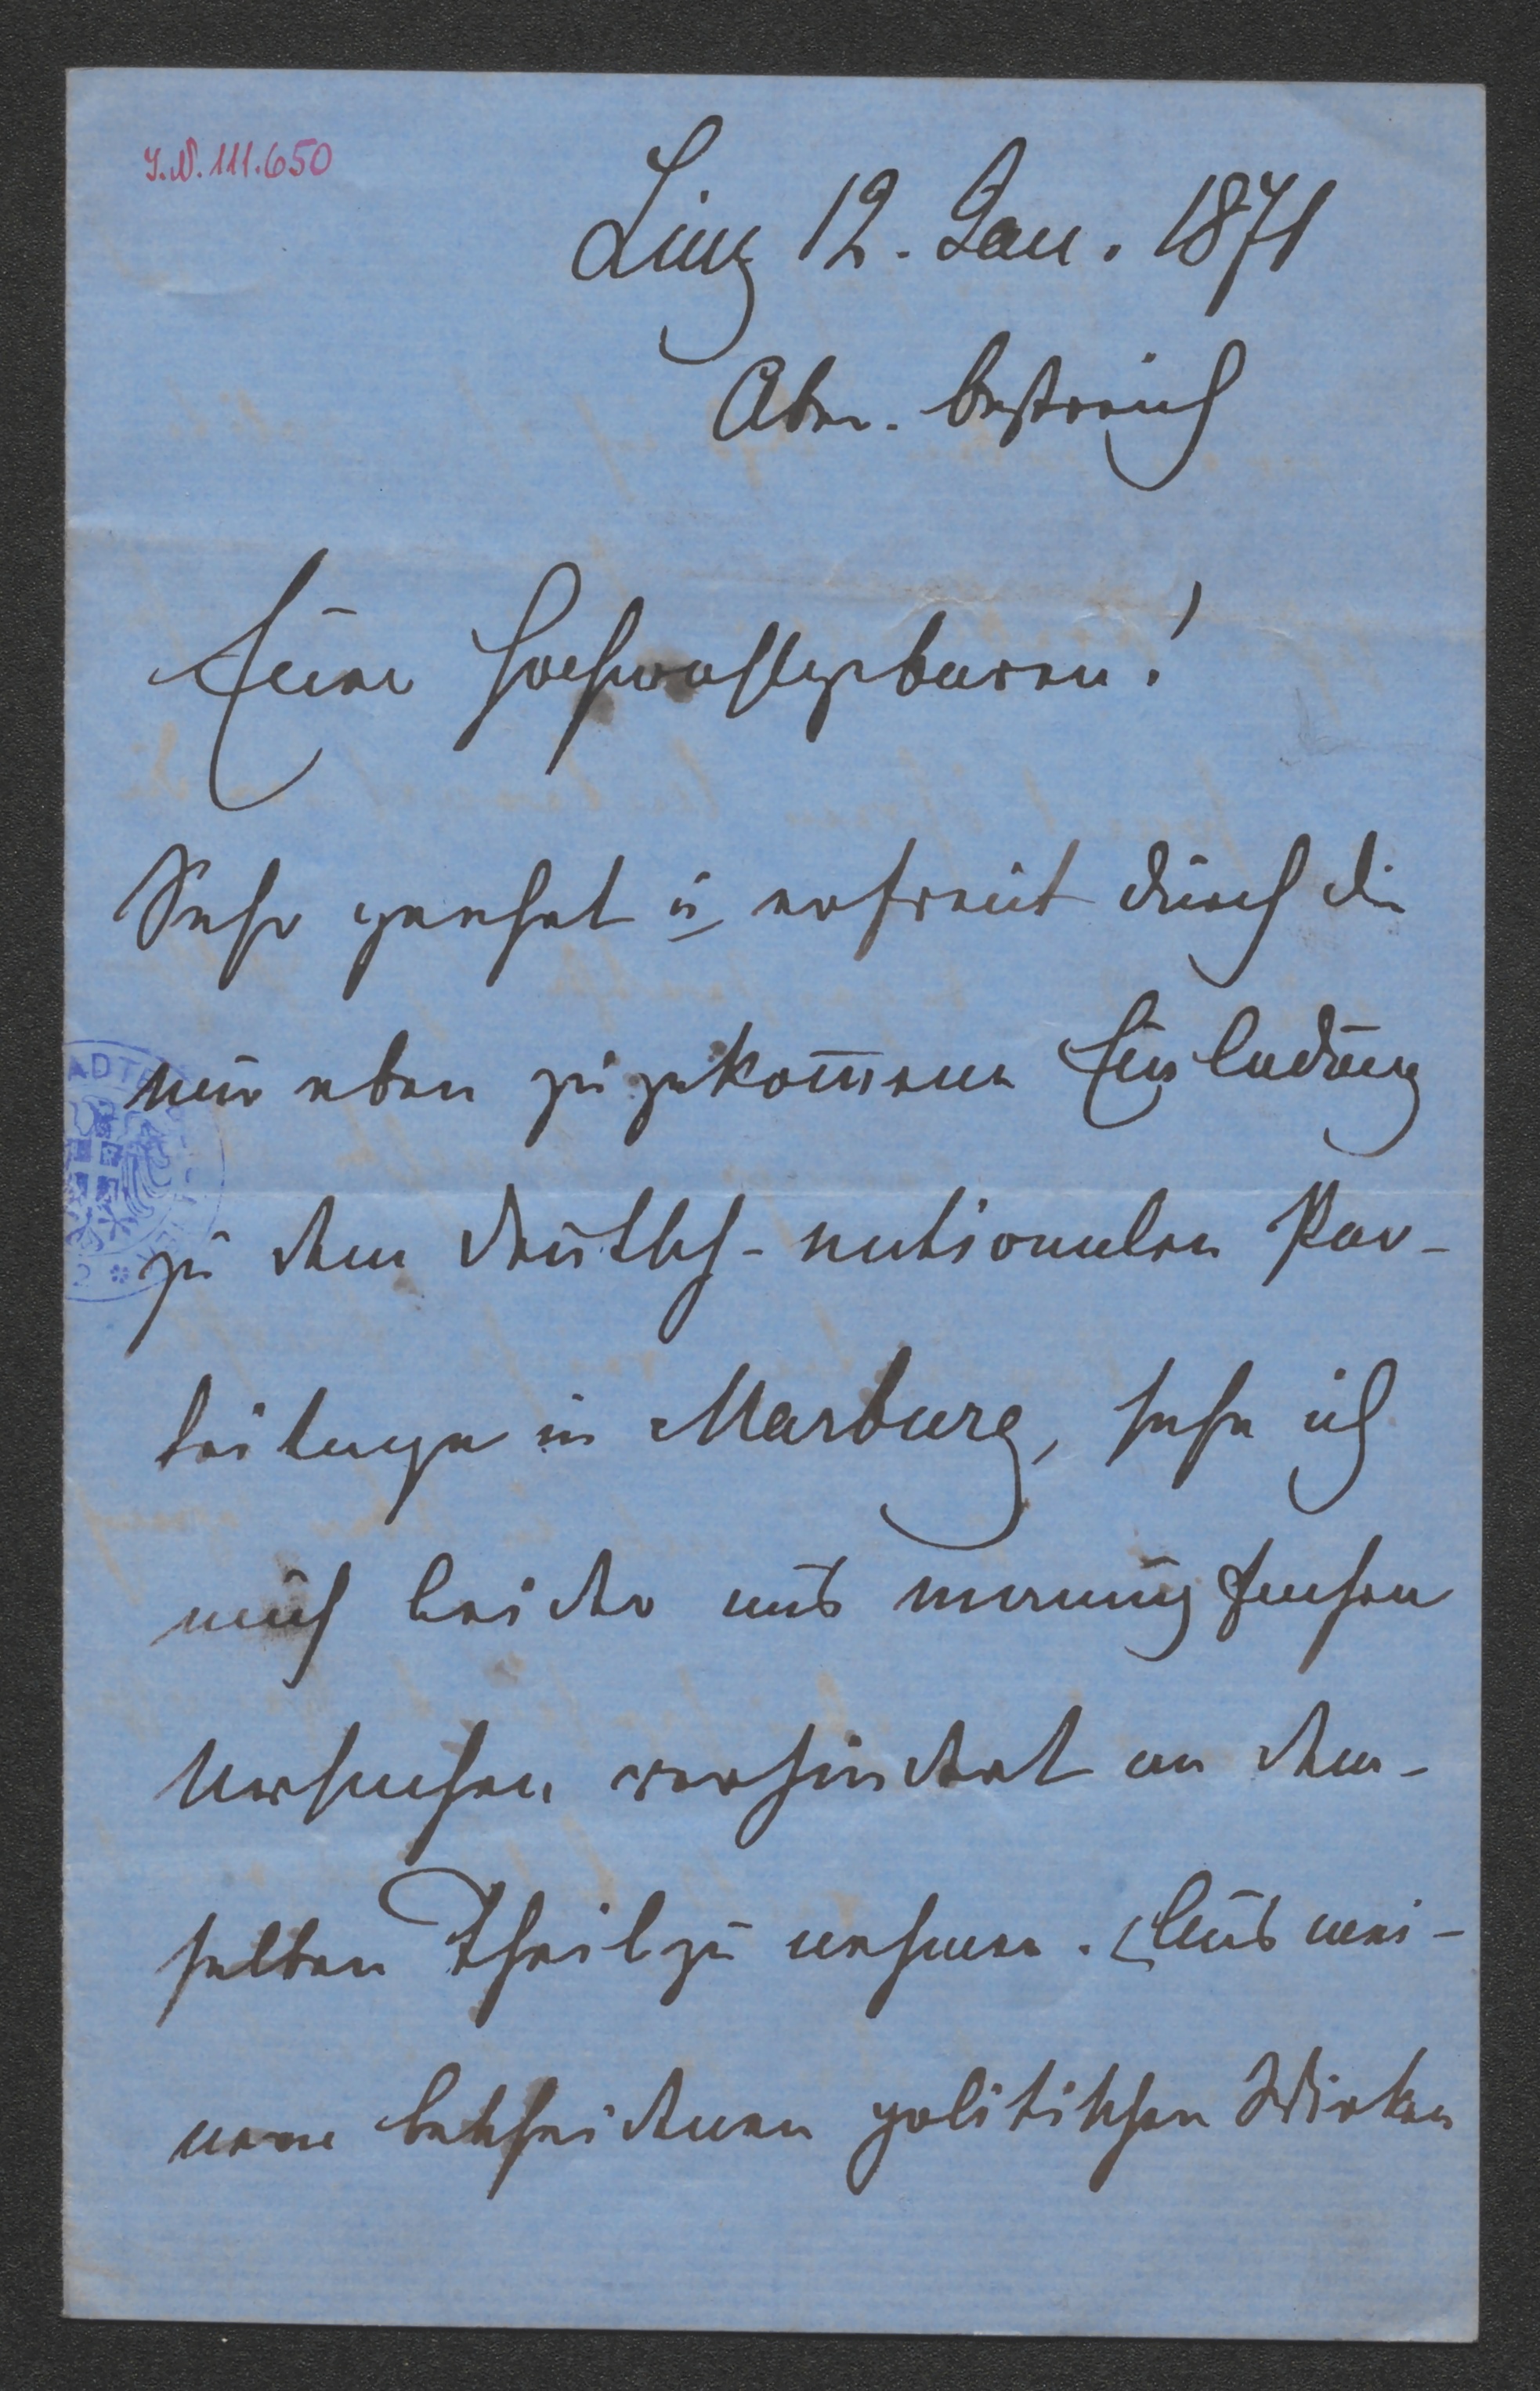 I.N. 111.650
Linz 12. Jan. 1871
Ober. Oestreich
Euer Hochwohlgeboren!
Sehr geehrt u erfreut durch die
mir eben zugekom̅ene Einladung
zu dem deutsch-nationalen Par-
teitage in Marburg, sehe ich
mich leider aus mannigfachen
Ursachen verhindert an dem-
selben Theil zu nehmen. Aus mei-
nem bescheidenen politischen Wirken